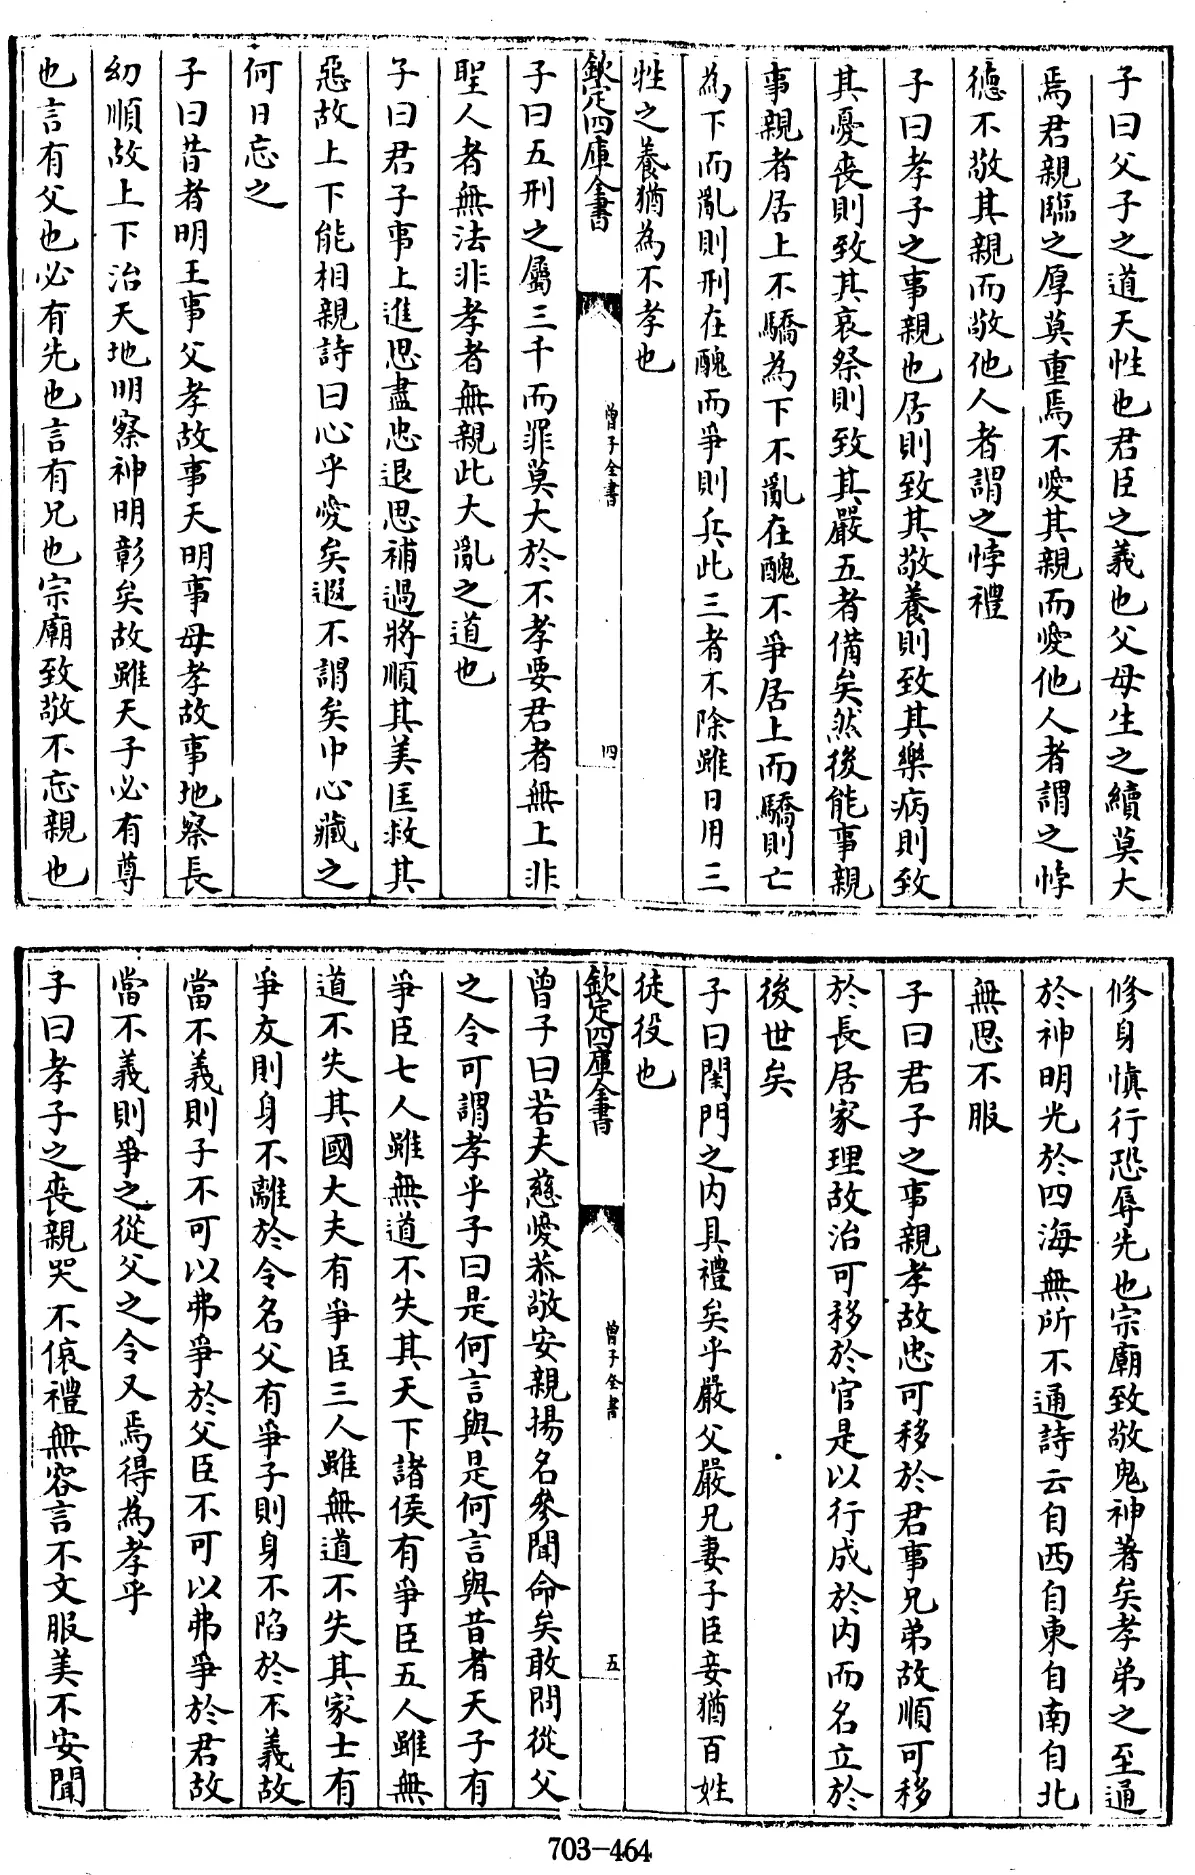 子曰父子之道天性也君臣之義也父母生之續莫大
焉君親臨之厚莫重焉不愛其親而愛他人者謂之悖
德不敬其親而敬他人者謂之悖禮
子曰孝子之事親也居則致其敬養則致其樂病則致
其憂喪則致其哀祭則致其嚴五者備矣然後能事親
事親者居上不驕為下不亂在醜不爭居上而驕則亡
為下而亂則刑在醜而爭則兵此三者不除雖日用三
牲之養猶為不孝也
欽定四庫全書
曾子全書
四
子曰五刑之屬三千而罪莫大於不孝要君者無上非
聖人者無法非孝者無親此大亂之道也
子曰君子事上進思盡忠退思補過將順其美匡救其
惡故上下能相親詩曰心乎愛矣遐不謂矣中心藏之
何日忘之
子曰昔者明王事父孝故事天明事母孝故事地察長
幼順故上下治天地明察神明彰矣故雖天子必有尊
也言有父也必有先也言有兄也宗廟致敬不忘親也
修身慎行恐辱先也宗廟致敬鬼神著矣孝弟之至通
於神明光於四海無所不通詩云自西自東自南自北
無思不服
子曰君子之事親孝故忠可移於君事兄弟故順可移
於長居家理故治可移於官是以行成於內而名立於
後世矣
子曰閨門之內具禮矣乎嚴父嚴兄妻子臣妾猶百姓
徒役也
欽定四庫全書
曾子全書
五
曾子曰若夫慈愛恭敬安親揚名參聞命矣敢問從父
之令可謂孝乎子曰是何言與是何言與昔者天子有
爭臣七人雖無道不失其天下諸侯有爭臣五人雖無
道不失其國大夫有爭臣三人雖無道不失其家士有
爭友則身不離於令名父有爭子則身不陷於不義故
當不義則子不可以弗爭於父臣不可以弗爭於君故
當不義則爭之從父之令又焉得為孝乎
子曰孝子之喪親哭不偯禮無容言不文服美不安聞
703-464